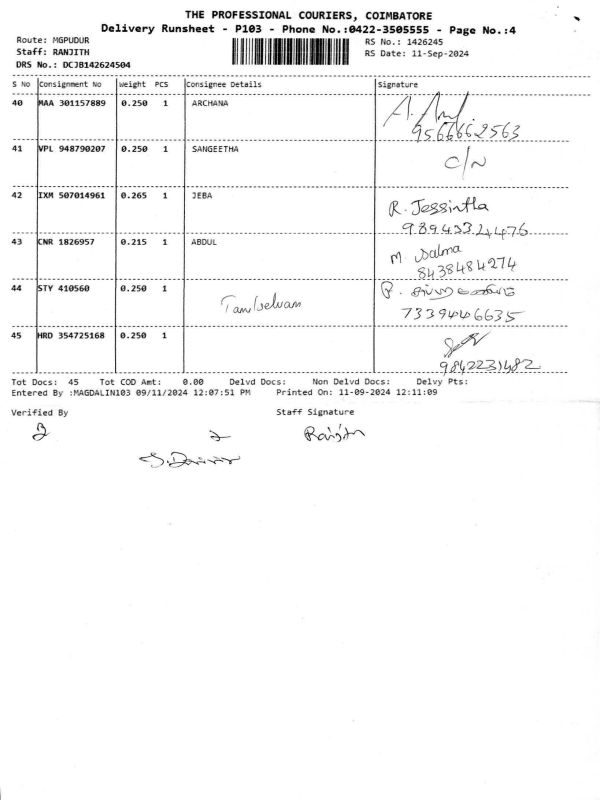 THE PROFESSIONAL COURIERS, COIMBATORE
Delivery Runsheet - P103 - Phone No.:0422-3505555 - Page No.:4
Route: MGPUDUR RS No.: 1426245
Staff: RANJITH RS Date: 11-Sep-2024
DRS No.: DCJB142624504
S No Consignment No Weight PCS Consignee Details Signature
40 MAA 301157889 0.250 1 ARCHANA
9566662563
41 VPL 948790207 0.250 1 SANGEETHA C/N
42 IXM 507014961 0.265 1 JEBA R. Jessintha
43 CNR 1826957 0.215 1 ABDUL M. Salma
8438484274
44 STY 410560 0.250 1 P.
7339446635
45 HRD 354725168 0.250 1
9842231482
Tot Docs: 45 Tot COD Amt: 0.00 Delvd Docs: Non Delvd Docs: Delvy Pts:
Entered By :MAGDALIN103 09/11/2024 12:07:51 PM Printed On: 11-09-2024 12:11:09
Verified By Staff Signature